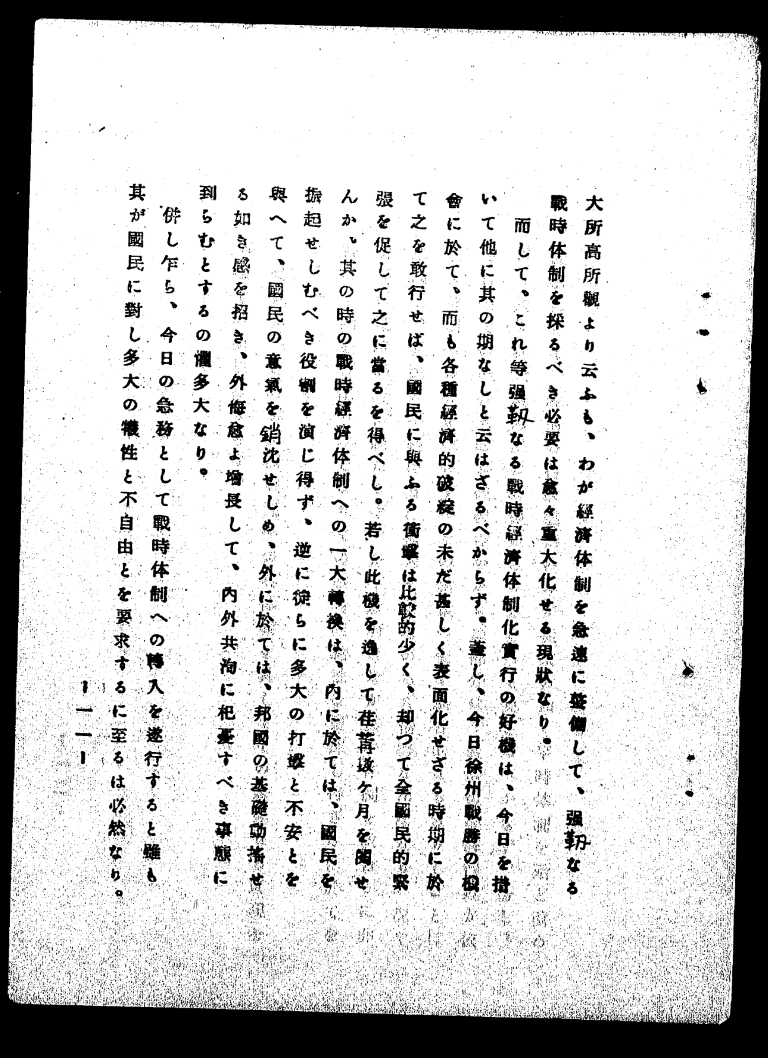 大所高所觀より云ふも、わが經濟体制を急速に整備して、强靭なる
戰時体制を採るべき必要は愈々重大化せる現狀なり。
而して、これ等强靭なる戰時經濟体制化實行の好機は、今日を措
いて他に其の期なしと云はざるべからず。蓋し、今日徐州戰勝の機
會に於て、而も各種經濟的破綻の未だ甚しく表面化せざる時期に於
て之を敢行せば、國民に與ふる衝擊は比較的少く、却つて全國民的緊
張を促して之に當るを得べし。若し此機を逸して荏苒幾ケ月を閱せ
んか、其の時の戰時經濟体制への一大轉換は、內に於ては、國民を
振起せしむべき役割を演じ得ず、逆に徒らに多大の打擊と不安とを
與へて、國民の意氣を銷沈せしめ、外に於ては、邦國の基礎動搖せ
る如き感を招き、外侮愈よ增長して、內外共洵に杞憂すべき事態に
到らむとするの懼多大なり。
併し乍ら、今日の急務として戰時体制への轉入を遂行すると雖も
其が國民に對し多大の犧牲と不自由とを要求するに至るは必然なり。